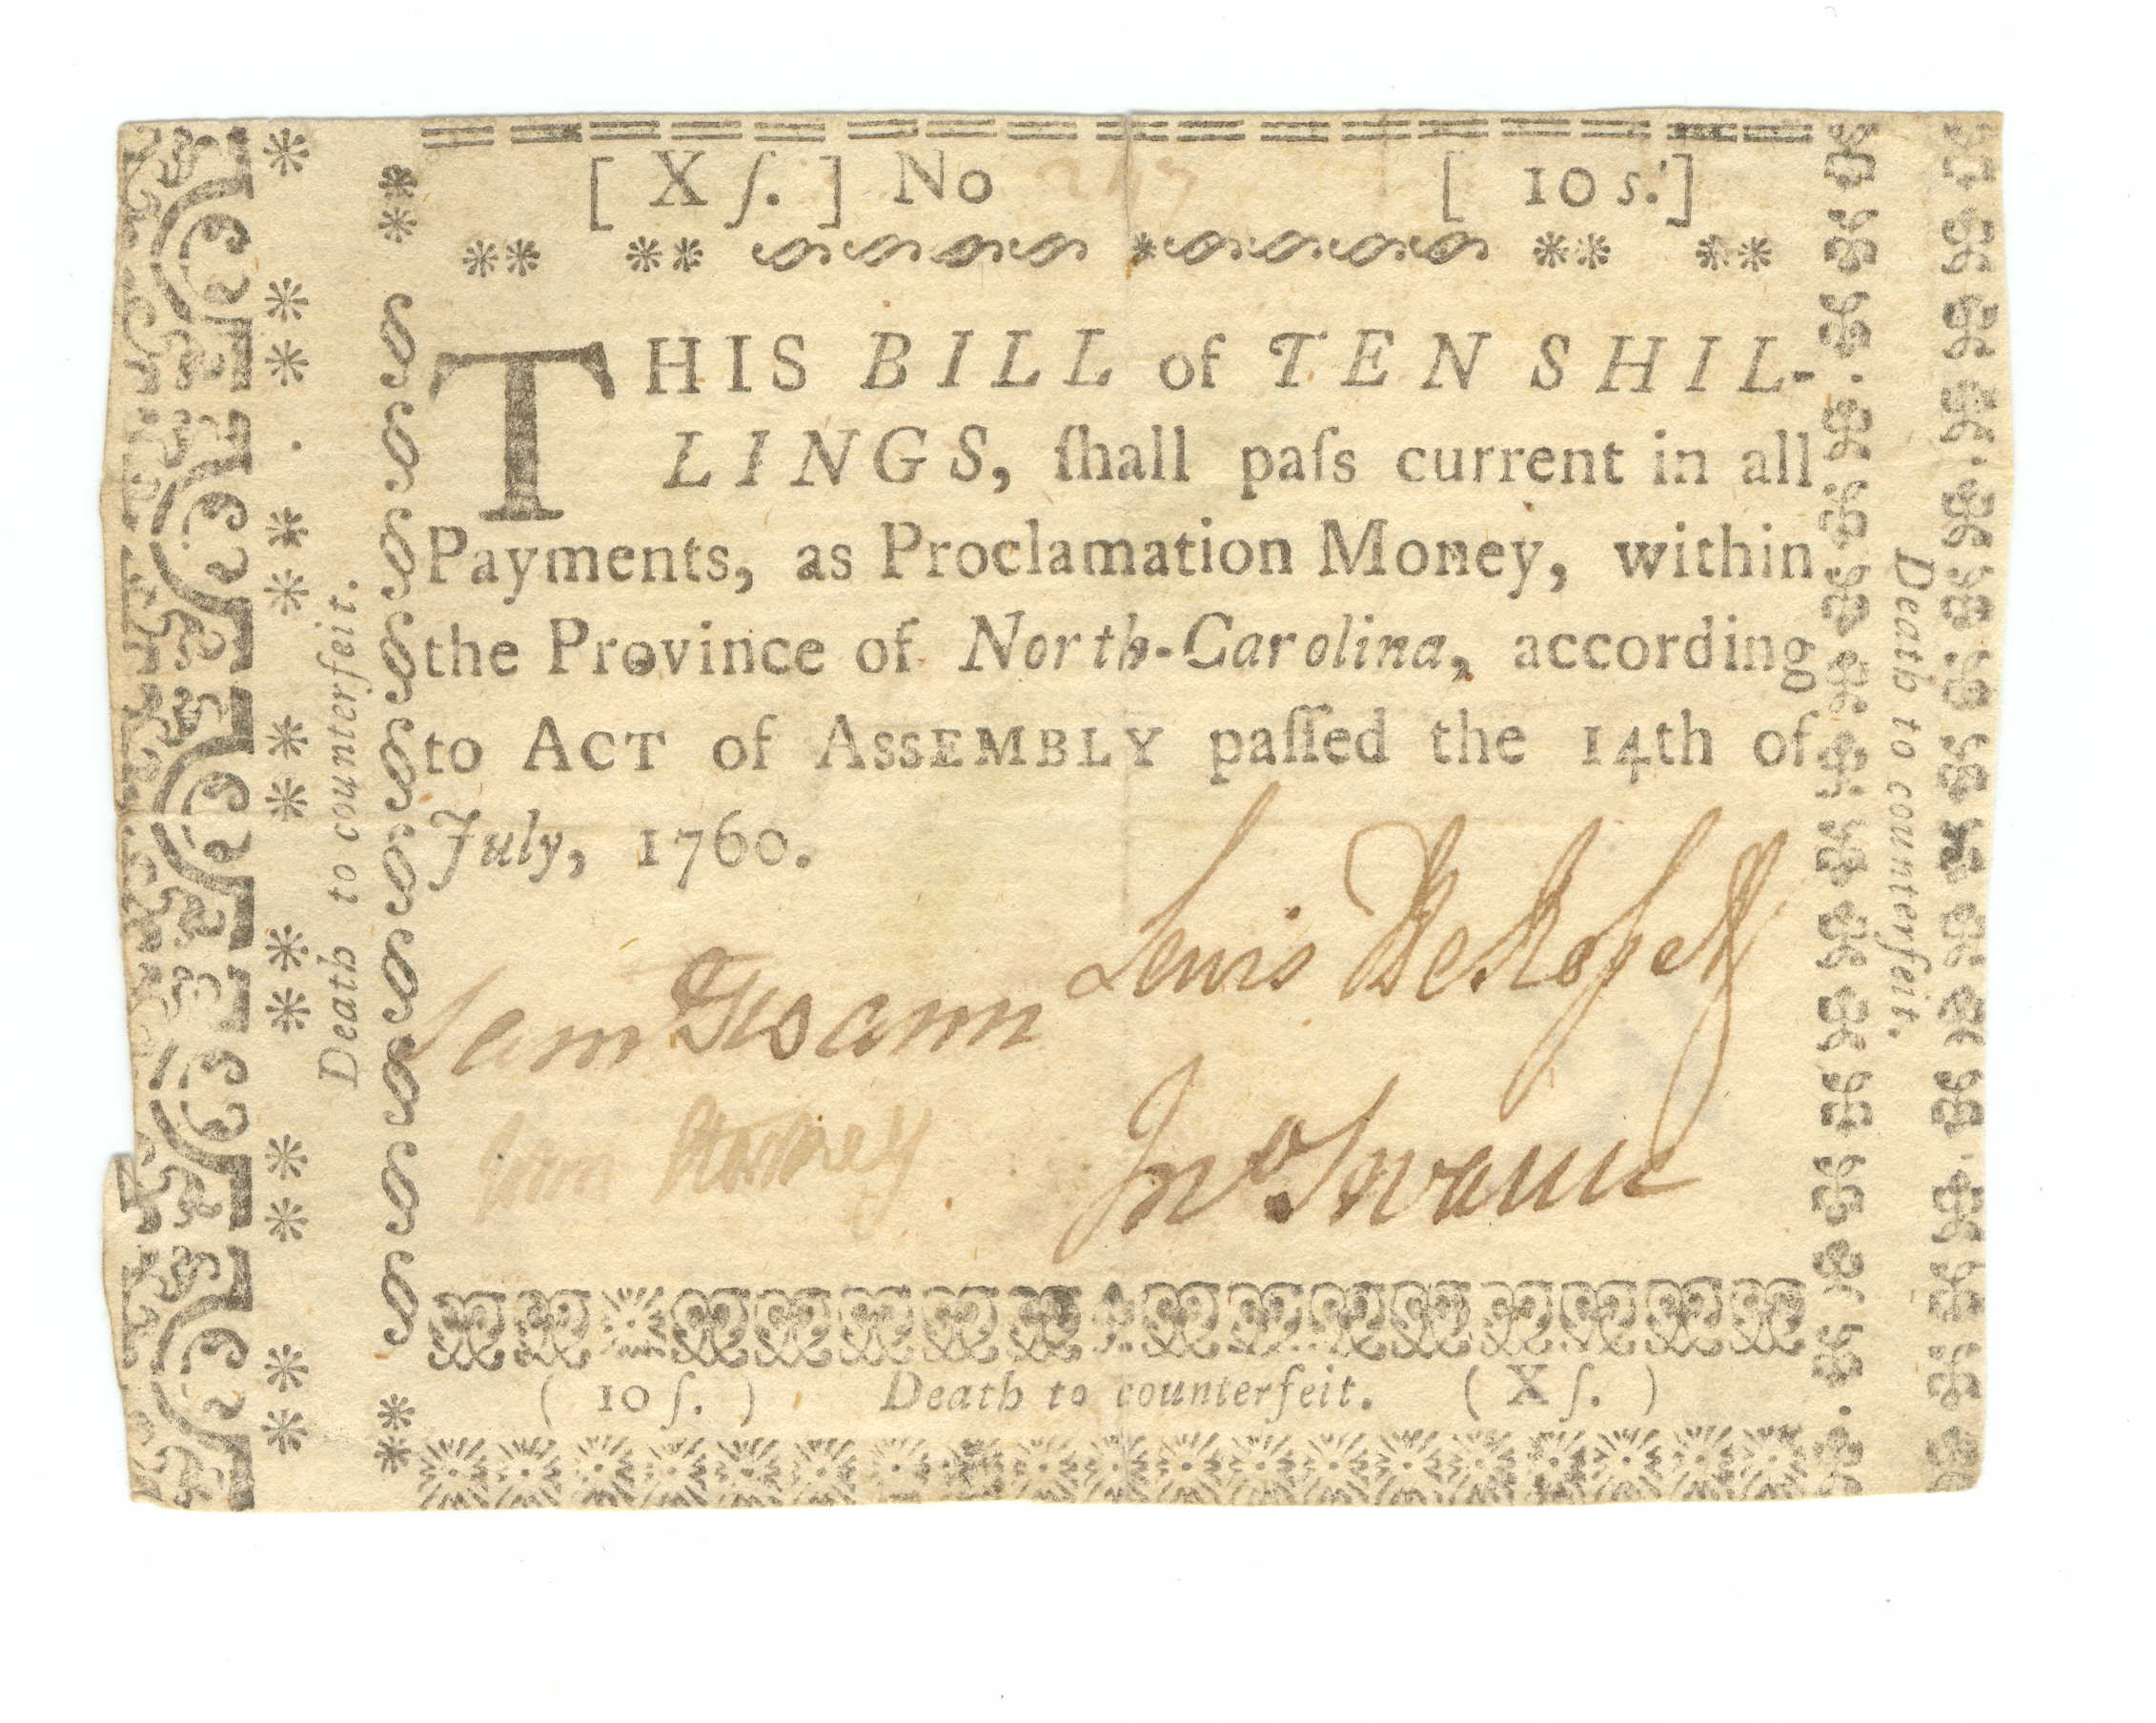 [ X ſ. ] No [ 10 s. ]
THIS BILL of TEN SHIL-
LINGS, ſhall paſs current in all
Payments, as Proclamation Money, within
the Province of North-Carolina, according
to ACT of ASSEMBLY paſſed the 14th of
July, 1760.
Lewis DeRoſsett
Sam Swann
Jno. Swann
( 10 ſ. ) Death to counterfeit. ( X ſ. )
Death to counterfeit.
Death to counterfeit.